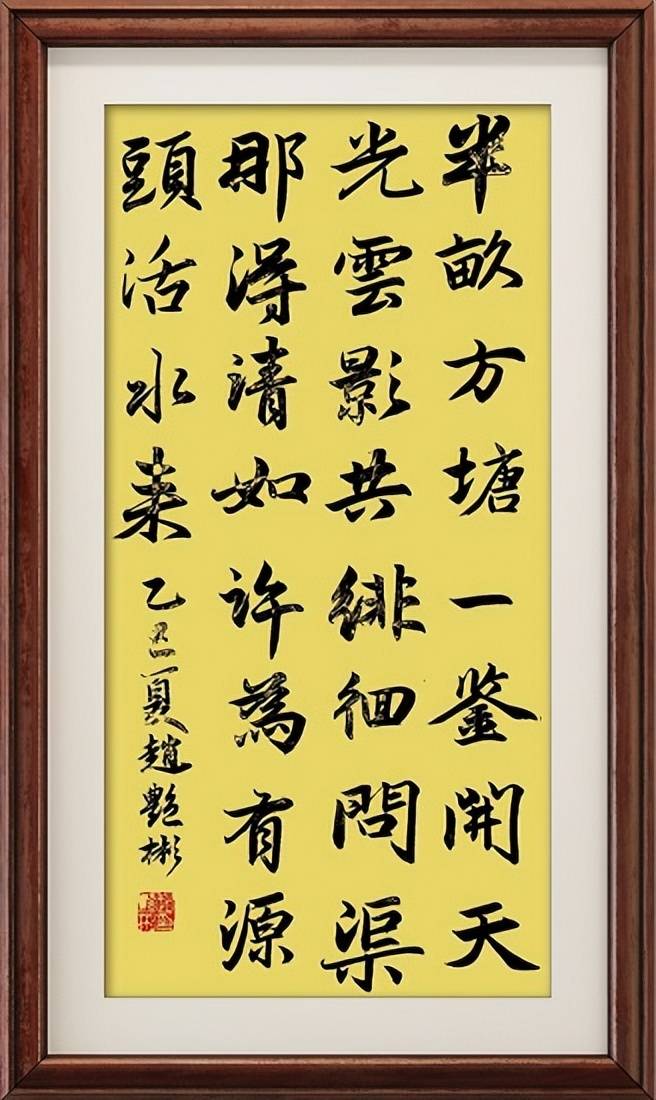 半畝方塘一鉴開天
光雲影共徘徊問渠
那得清如許為有源
頭活水来乙巳夏趙艷彬